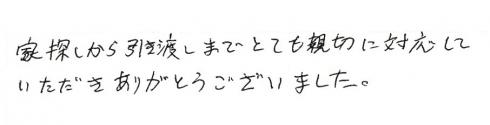 家探しから引き渡しまでとても親切に対応して
いただきありがとうございました。